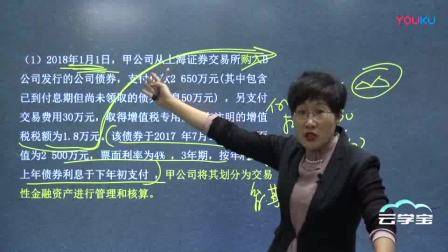 YOUKU
(1) 2018年1月1日,甲公司从上海证券交易所购入B
公司发行的公司债券,支付 2 650万元(其中包含
已到付息期但尚未领取的债券 息50万元),另支付
交易费用30万元,取得增值税专用 注明的增
值税税额为1.8万元。该债券于2017 年7月
值为2 500万元,票面利率为4%,3年期,按年
上年债券利息于下年初支付。甲公司将其划分为交易
性金融资产进行管理和核算。
云学宝